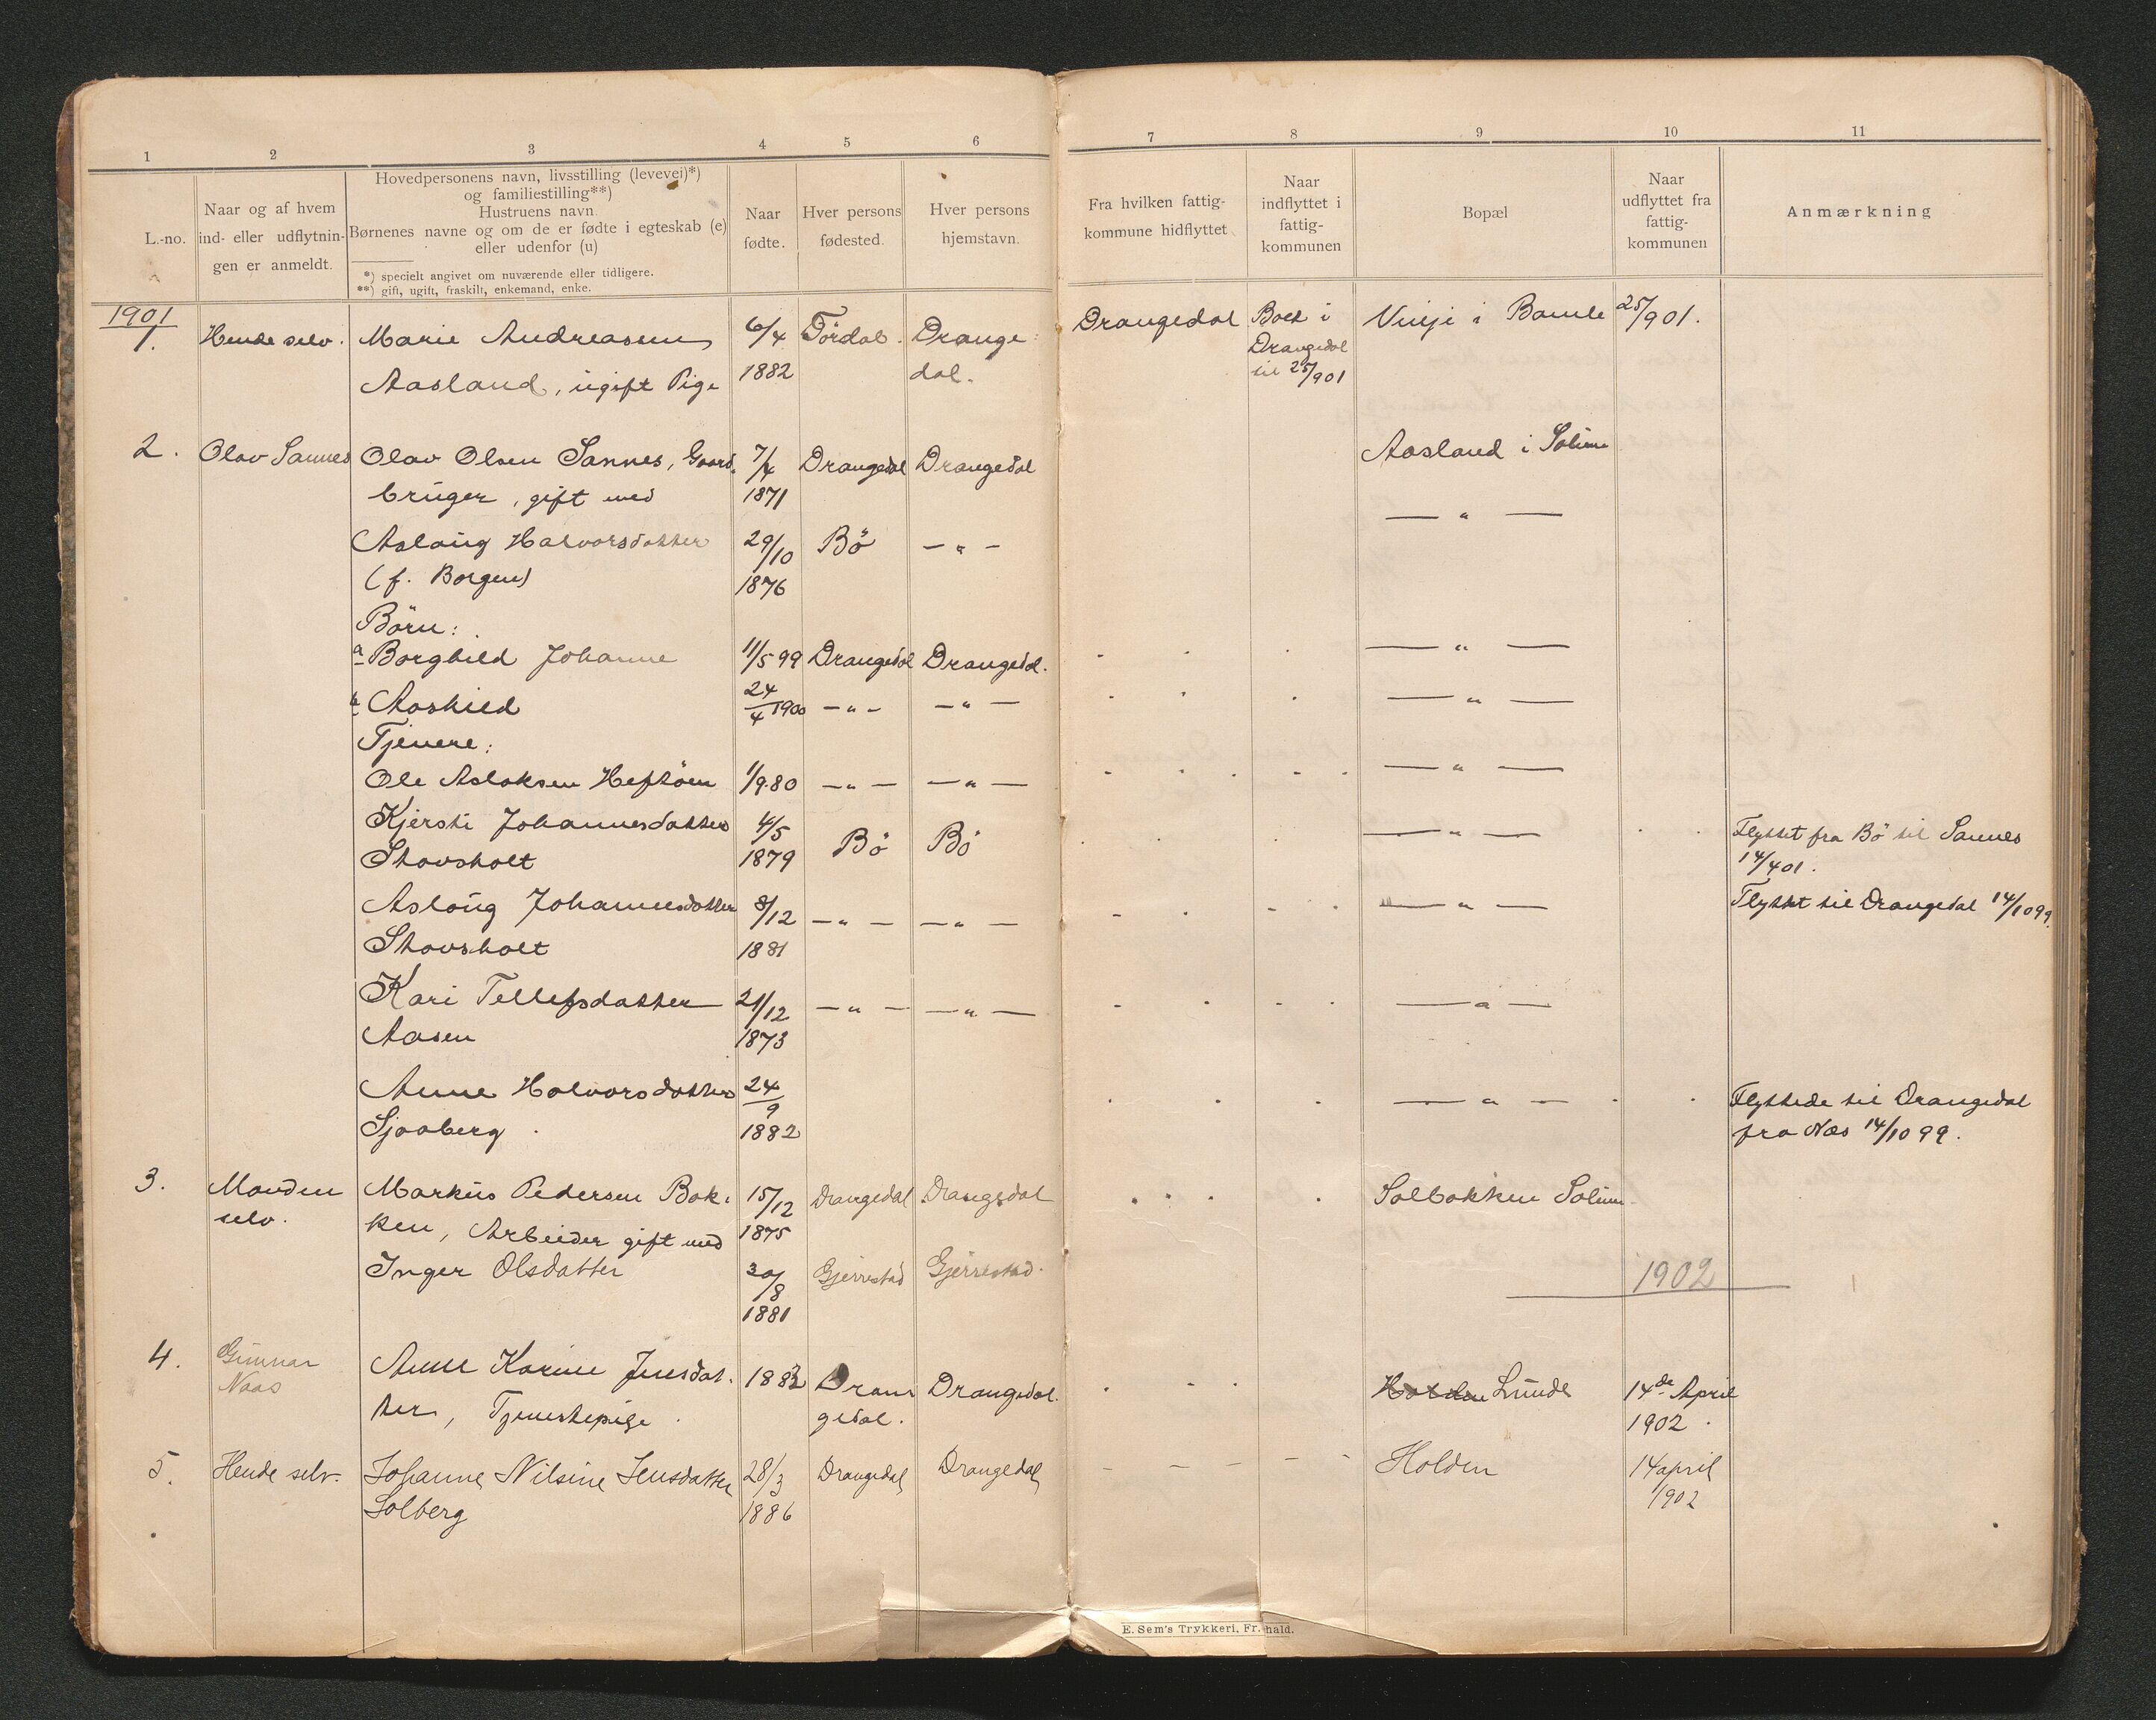 1 2 3 4 5 6 7 8 9 10 11
L.-no.
Naar og af hvem
ind- eller udflytnin-
gen er anmeldt.
Hovedpersonens navn, livsstilling (levevei)*)
og familiestilling**)
Hustruens navn.
Børnenes navne og om de er fødte i egteskab (e)
eller udenfor (u)
*) specielt angivet om nuværende eller tidligere.
**) gift, ugift, fraskilt, enkemand, enke.
Naar
fødte.
Hver persons
fødested.
Hver persons
hjemstavn.
Fra hvilken fattig-
kommune hidflyttet
Naar
indflyttet i
fattig-
kommunen
Bopæl
Naar
udflyttet fra
fattig-
kommunen
Anmærkning
1901
1. Hende selv. Marie Andreasen 6/4 Tördal. Drange- Drangedal Boet i Vinje i Bamle 25/901.
Aasland, ugift Pige 1882 dal. Drangedal
til 25/901
2. Olav Sannes Olav Olsen Sannes, Gaard- 7/4 Drangedal Drangedal Aasland i Solum
bruger, gift med 1871
Aslaug Halvorsdatter 29/10 Bö — " — — " —
(f. Borgen) 1876
Börn:
a Borghild Johanne 11/5 99 Drangedal Drangedal. — " —
b Aashild 24/4 1900 — " — — " — — " —
Tjenere:
Ole Aslaksen Heftöen 1/9 80 — " — — " — — " —
Kjersti Johannesdatter 4/5 Bö Bö — " — Flyttet fra Bö til Sannes
Skovsholt 1879 14/4 01.
Aslaug Johannesdatter 8/12 — " — — " — — " — Flyttet til Drangedal 14/10 99.
Skovsholt 1881
Kari Tellefsdatter 21/12 — " — — " — — " —
Aasen 1873
Anne Halvorsdatter 24/9 — " — Flyttede til Drangedal
Sjaaberg. 1882 fra Næs 14/10 99.
3. Manden Markus Pedersen Bak- 15/12 Drangedal Drangedal Solbakken Solum
selv. ken, Arbeider gift med 1875
Inger Olsdatter 30/8 Gjerrestad Gjerrestad.
1881
1902
4. Gunnar Anne Karine Jensdat- 1883 Dran Drangedal. Holden Lunde 14de April
Naas ter, Tjenestepige. gedal. 1902.
5. Hende selv. Johanne Nilsine Jensdatter 28/3 Drangedal Drangedal Holden 14 april
Solberg 1886 1902
E. Sem's Trykkeri, Fr.hald.